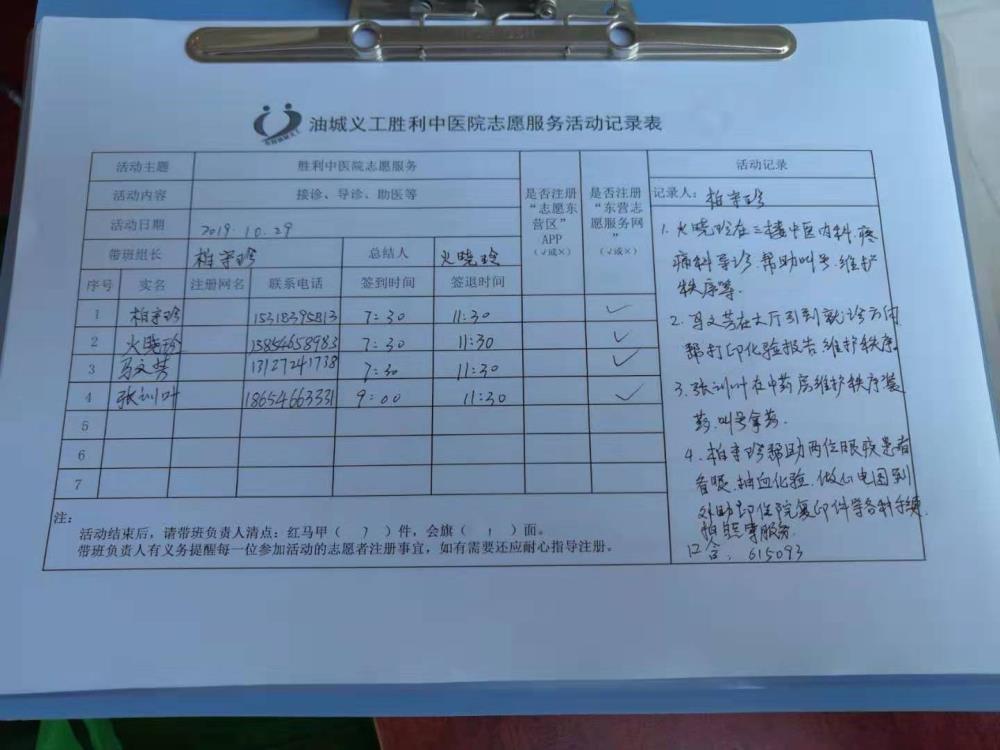 油城义工胜利中医院志愿服务活动记录表
活动主题 胜利中医院志愿服务
活动内容 接诊、导诊、助医等
活动日期 2019.10.29
带班组长 柏守珍 总结人 火晓玲
是否注册“志愿东营区”APP(√或×)
是否注册“东营志愿服务网”(√或×)
序号 实名 注册网名 联系电话 签到时间 签退时间
1 柏守珍 15318395813 7:30 11:30 ✓
2 火晓玲 15854658983 7:30 11:30 ✓
3 马文芳 13127241738 7:30 11:30 ✓
4 张训叶 18654663331 9:00 11:30 ✓
5
6
7
注:
活动结束后,请带班负责人清点:红马甲( 7 )件,会旗( 1 )面。
带班负责人有义务提醒每一位参加活动的志愿者注册事宜,如有需要还应耐心指导注册。
活动记录
记录人:柏守珍
1.火晓玲在三楼中医内科.疼
痛科导诊.帮助叫号.维护
秩序等.
2.马文芳在大厅引到就诊方向
帮打印化验报告.维护秩序.
3.张训叶在中药房维护秩序装
药.叫号拿药.
4.柏守珍帮助两位眼疾患者
看眼.抽血化验.做心电图到
外助印住院复印件等各种手续.
拍照等服务.
口令:615093